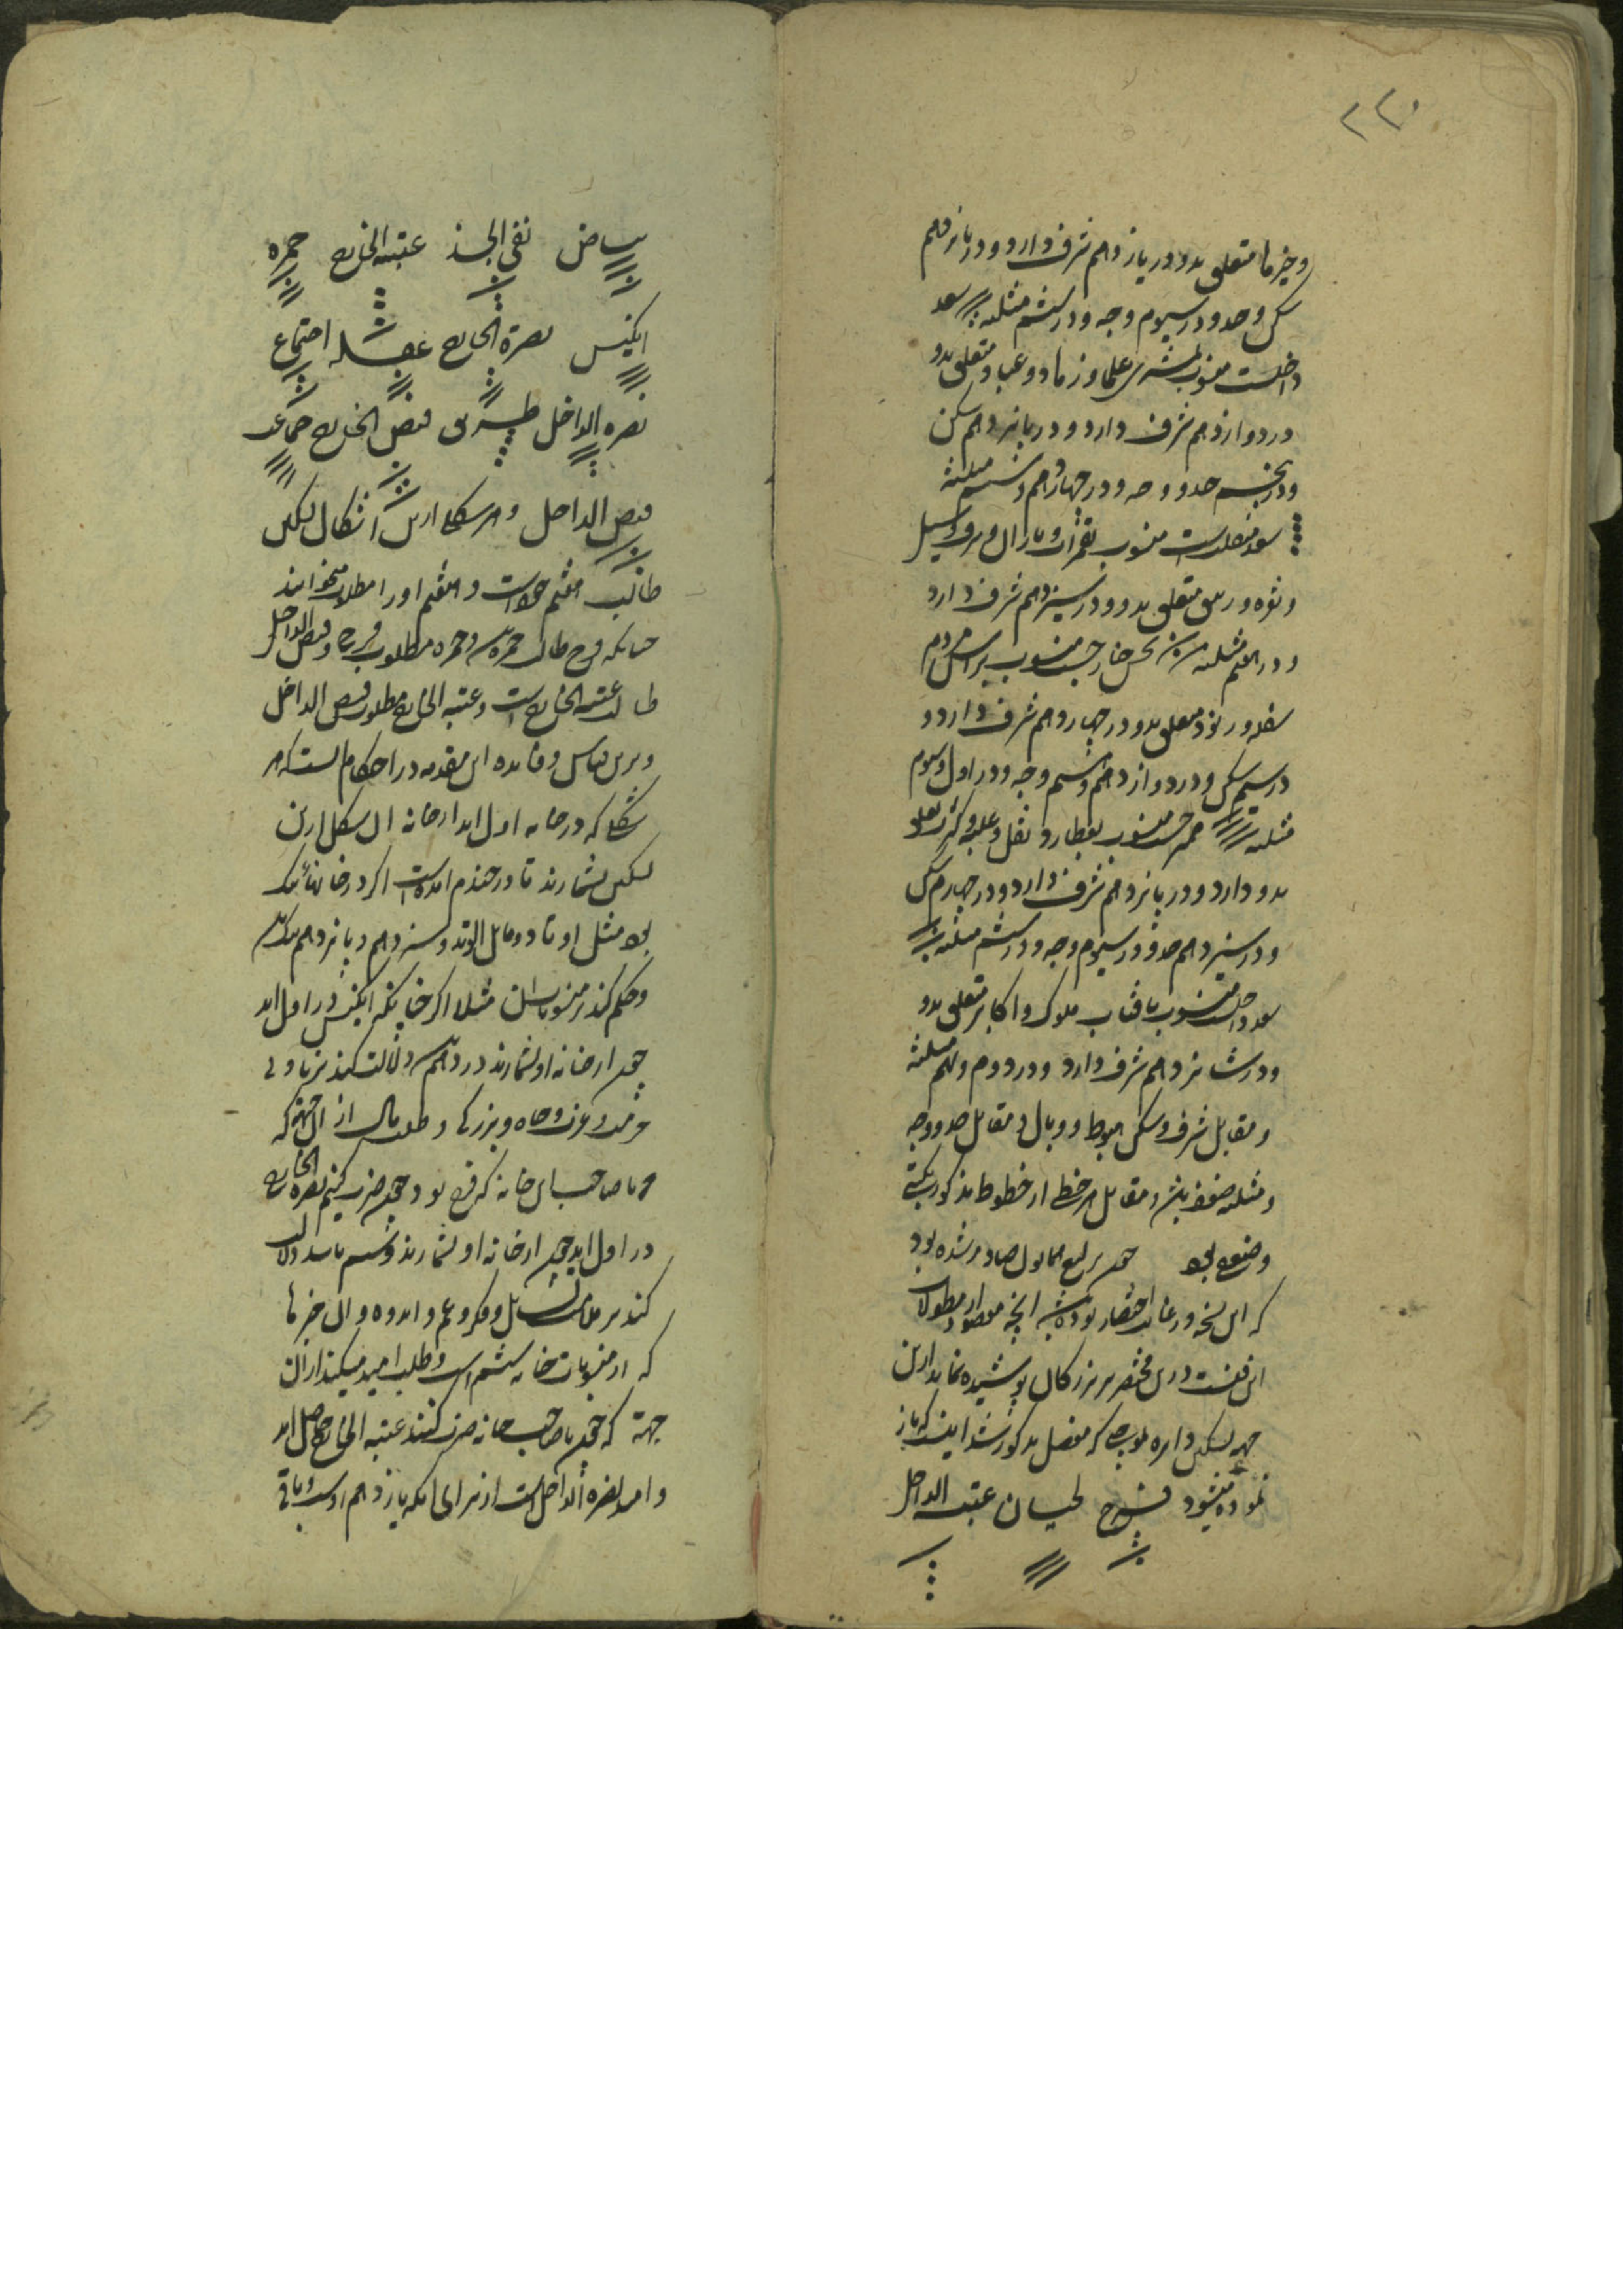 ۲۲۰
و خیرها متعلق بدو در یازدهم شرف دارد و در پانزدهم
سکن و حد و در سیوم وجه و در ششم مثلثه سعد
داخلست منسوب بمشتری علما و زهاد و عباد متعلق بدو
در دوازدهم شرف دارد و در پانزدهم سکن
و در پنجم حد و وجه و در چهاردهم و ششم مثلثه
سعد منقلبست منسوب بقمر
متعلق بدو و در سیزدهم شرف دارد
و در هفتم مثلثه نحس خارجست منسوب براس مردم
سفله متعلق بدو در چهاردهم شرف دارد و
در سیم سکن و در دوازدهم و ششم وجه و در اول و سوم
مثلثه ممتزجست منسوب بعطارد
بدو دارد و در پانزدهم شرف دارد و در چهارم سکن
و در سیزدهم حد و در سیوم وجه و در ششم مثلثه
سعد داخلست منسوب بافتاب ملوک و اکابر متعلق بدو
و در شانزدهم شرف دارد و در دوم و نهم مثلثه
و مقابل شرف و سکن هبوط و وبال و مقابل حد و وجه
و مثلثه ضعف یعنی در مقابل هر خطی از خطوط مذکور نکبتی
و ضعفی بود چون یرلیغ همایون صادر شده بود
که این نسخه در غایت اختصار بوده باشد انچه مقصود از مطولات
این فنست درین مختصر بر بزرگان پوشیده نماند ازین
جهه تسکین دایره بموجبی که مفصل مذکور شد اینست که باز
نموده میشود فرح لحیان عتبه الداخل
بیاض نقی الخد عتبه الخارج حمره
انکیس نصرة الخارج عقله اجتماع
نصره الداخل طریق قبض الخارج جماعه
قبض الداخل و هر شکلی ازین اشکال تسکین
طالب هفتم خود است و هفتم او را مطلوب میخوانند
چنانکه فرح طالب حمره است و حمره مطلوب فرح و قبض الداخل
طالب عتبه الخارج است و عتبه الخارج مطلوب قبض الداخل
و برین قیاس و فایده این مقدمه در احکام انست که هر
شکلی که در خانه اول اید از خانه ان شکل ازین
تسکین بشمارند تا در چندم امده است اگر در خانهای نیک
بود مثل اوتاد و مایل الوتد و سیزدهم و پانزدهم نیک بود
و حکم کند بر منسوبات ان مثلا اگر چنانکه انکیس در اول اید
چون از خانه او بشمارند در دهم است دلالت کند بر
حرمت و عزت و جاه و بزرگی و طلب مال از ان جهت که
چون با صاحب این خانه که فرح بود چون ضرب کنیم نصرة الخارج
در اول اید چون از خانه او بشمارند ششم باشد دلالت
کند بر ملالت دل و فکر و غم و اندوه و ان چیزها
که از منسوبات خانه ششم است و طلب امید میکند از ان
جهة که چون با صاحب خانه ضرب کنند عتبه الخارج حاصل اید
و امید نصره الداخل است از برای انکه یازدهم اوست و باقی